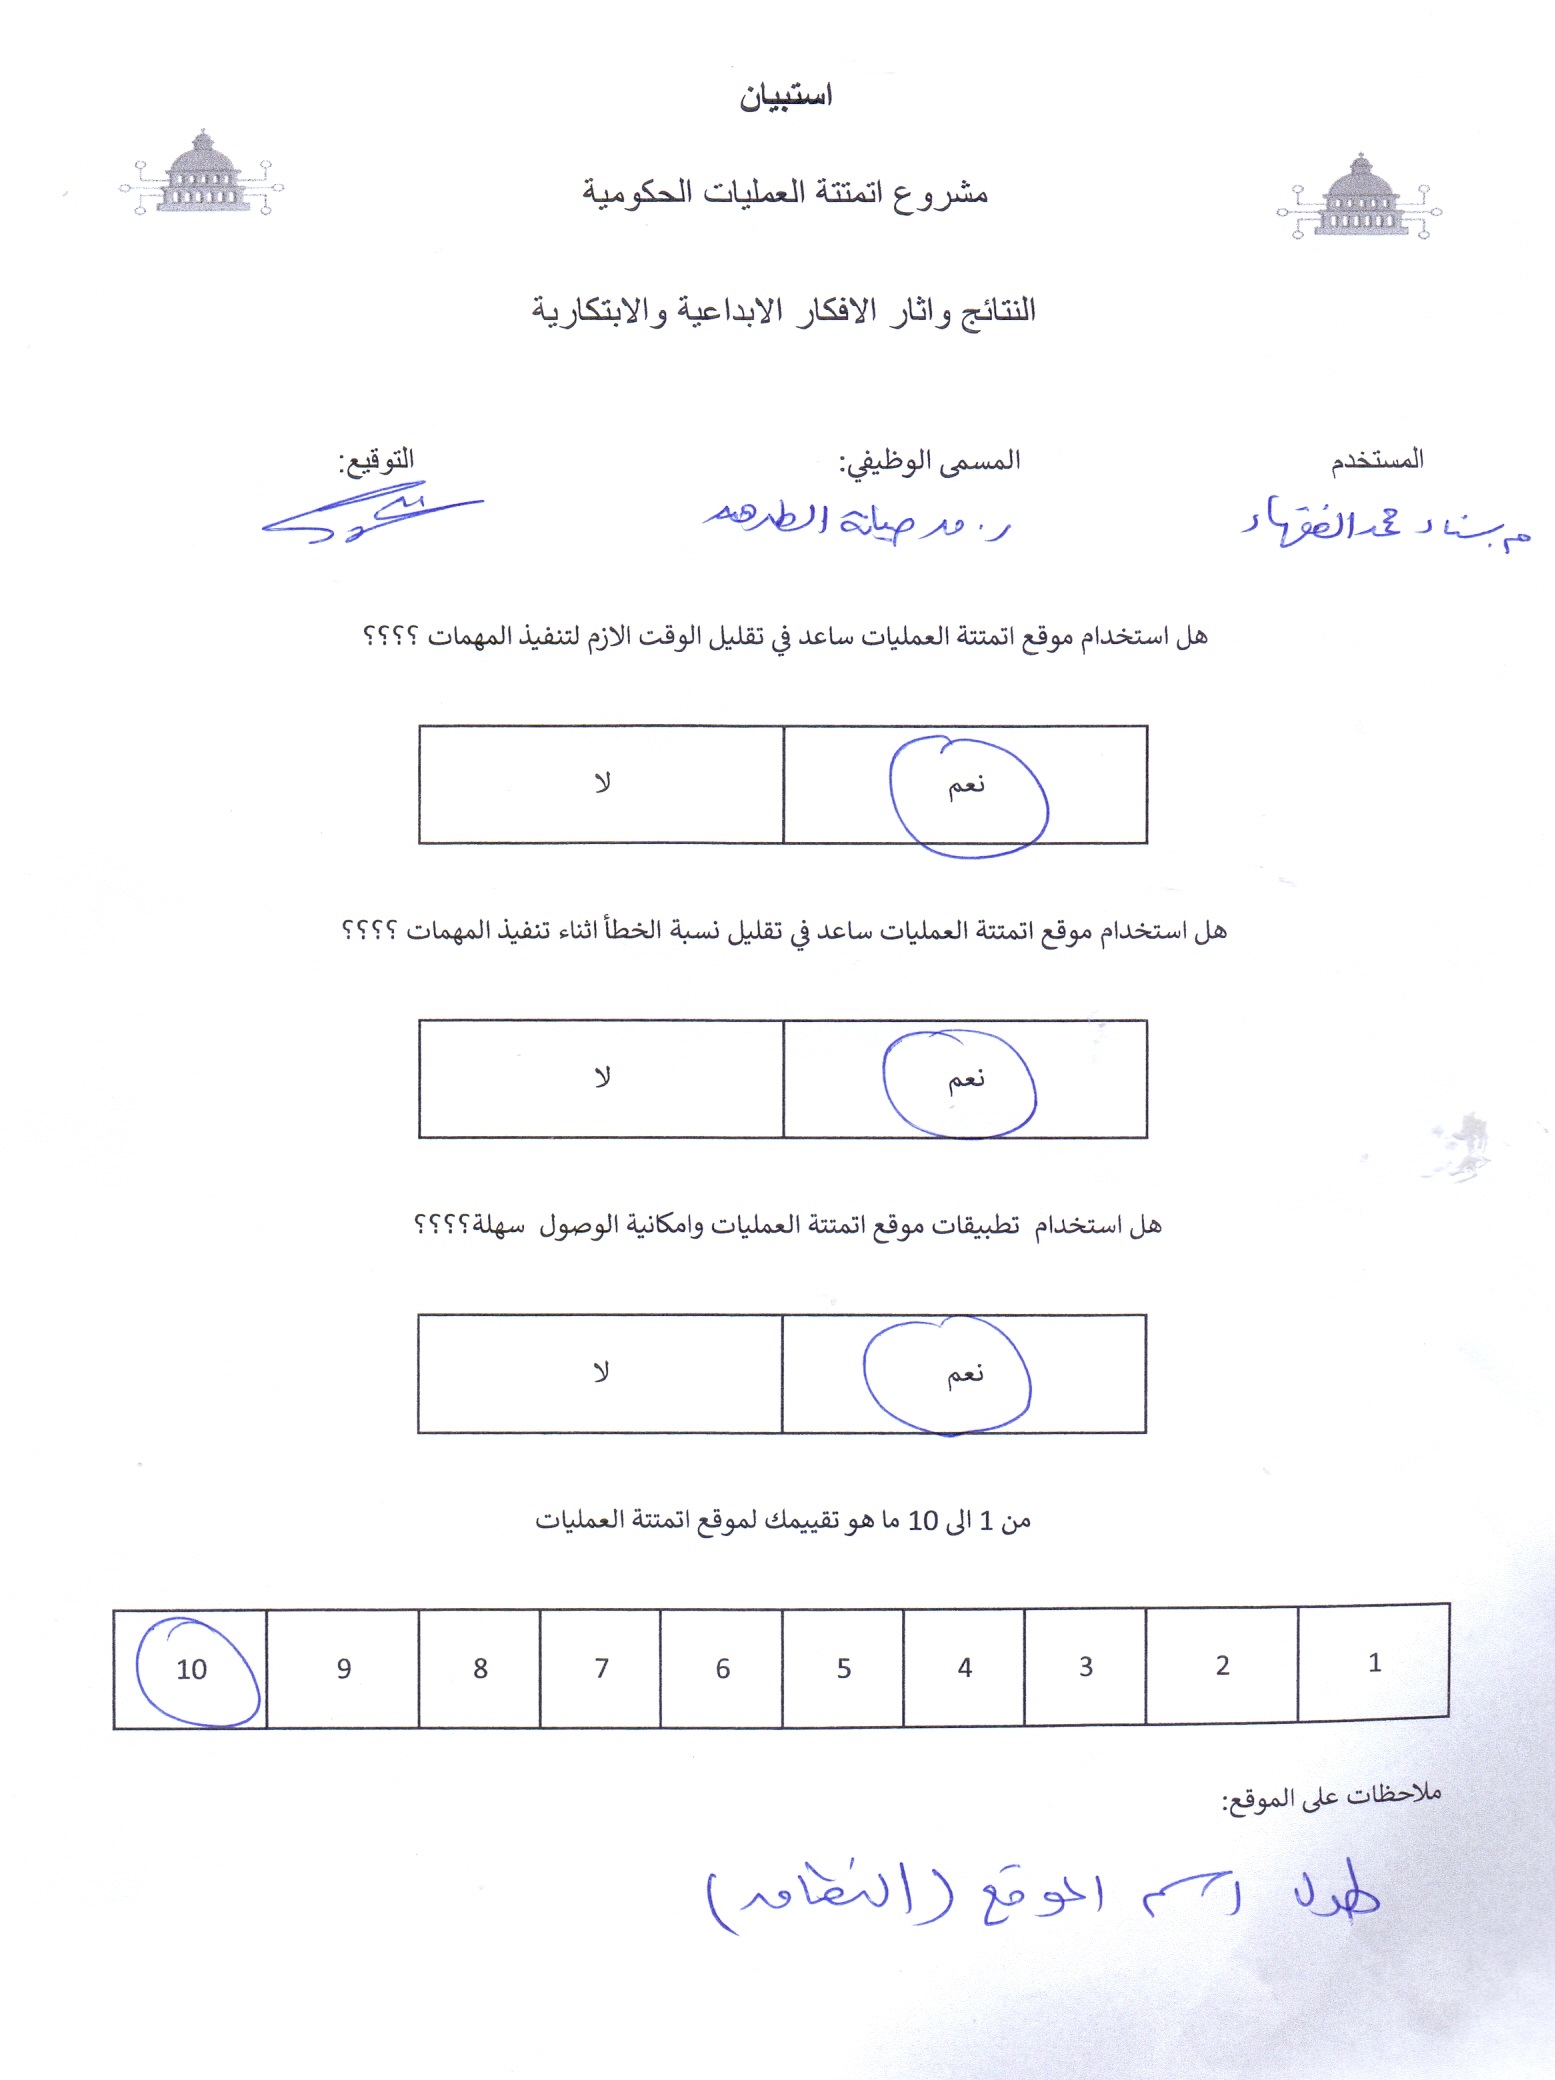 استبيان
مشروع اتمتتة العمليات الحكومية
النتائج واثار الافكار الابداعية والابتكارية
المستخدم المسمى الوظيفي: التوقيع:
م. سناء محمد الفقهاء ر. صيانة
هل استخدام موقع اتمتتة العمليات ساعد في تقليل الوقت الازم لتنفيذ المهمات ؟؟؟؟
نعم لا
هل استخدام موقع اتمتتة العمليات ساعد في تقليل نسبة الخطأ اثناء تنفيذ المهمات ؟؟؟؟
نعم لا
هل استخدام تطبيقات موقع اتمتتة العمليات وامكانية الوصول سهلة؟؟؟؟
نعم لا
من 1 الى 10 ما هو تقييمك لموقع اتمتتة العمليات
1 2 3 4 5 6 7 8 9 10
ملاحظات على الموقع:
طول اسم الموقع